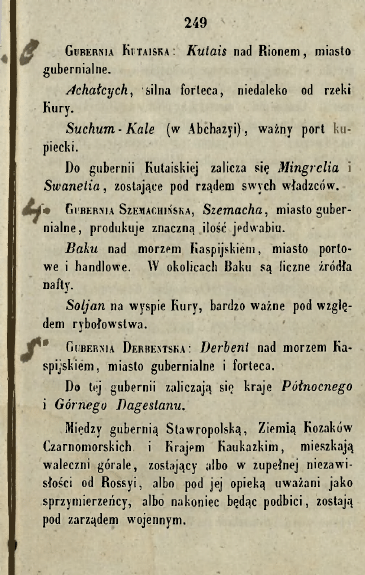 249
3
Gubernia Kutaiska: Kutais nad Rionem, miasto
gubernialne.
Achałcych, silna forteca, niedaleko od rzeki
Kury.
Suchum-Kale (w Abchazyi), ważny port ku-
piecki.
Do gubernii Kutaiskiej zalicza się Mingrelia i
Swanetia, zostające pod rządem swych władzców.
4.
Gubernia Szemachińska, Szemacha, miasto guber-
nialne, produkuje znaczną ilość jedwabiu.
Baku nad morzem Kaspijskiém, miasto porto-
we i handlowe. W okolicach Baku są liczne źródła
nafty.
Soljan na wyspie Kury, bardzo ważne pod wzglę-
dem rybołowstwa.
5.
Gubernia Derbentska: Derbent nad morzem Ka-
spijskiém, miasto gubernialne i forteca.
Do téj gubernii zaliczają się kraje Północnego
i Górnego Dagestanu.
Między gubernią Stawropolską, Ziemią Kozaków
Czarnomorskich i Krajem Kaukazkim, mieszkają
waleczni górale, zostający albo w zupełnej niezawi-
słości od Rossyi, albo pod jéj opieką uważani jako
sprzymierzeńcy, albo nakoniec będąc podbici, zostają
pod zarządem wojennym.